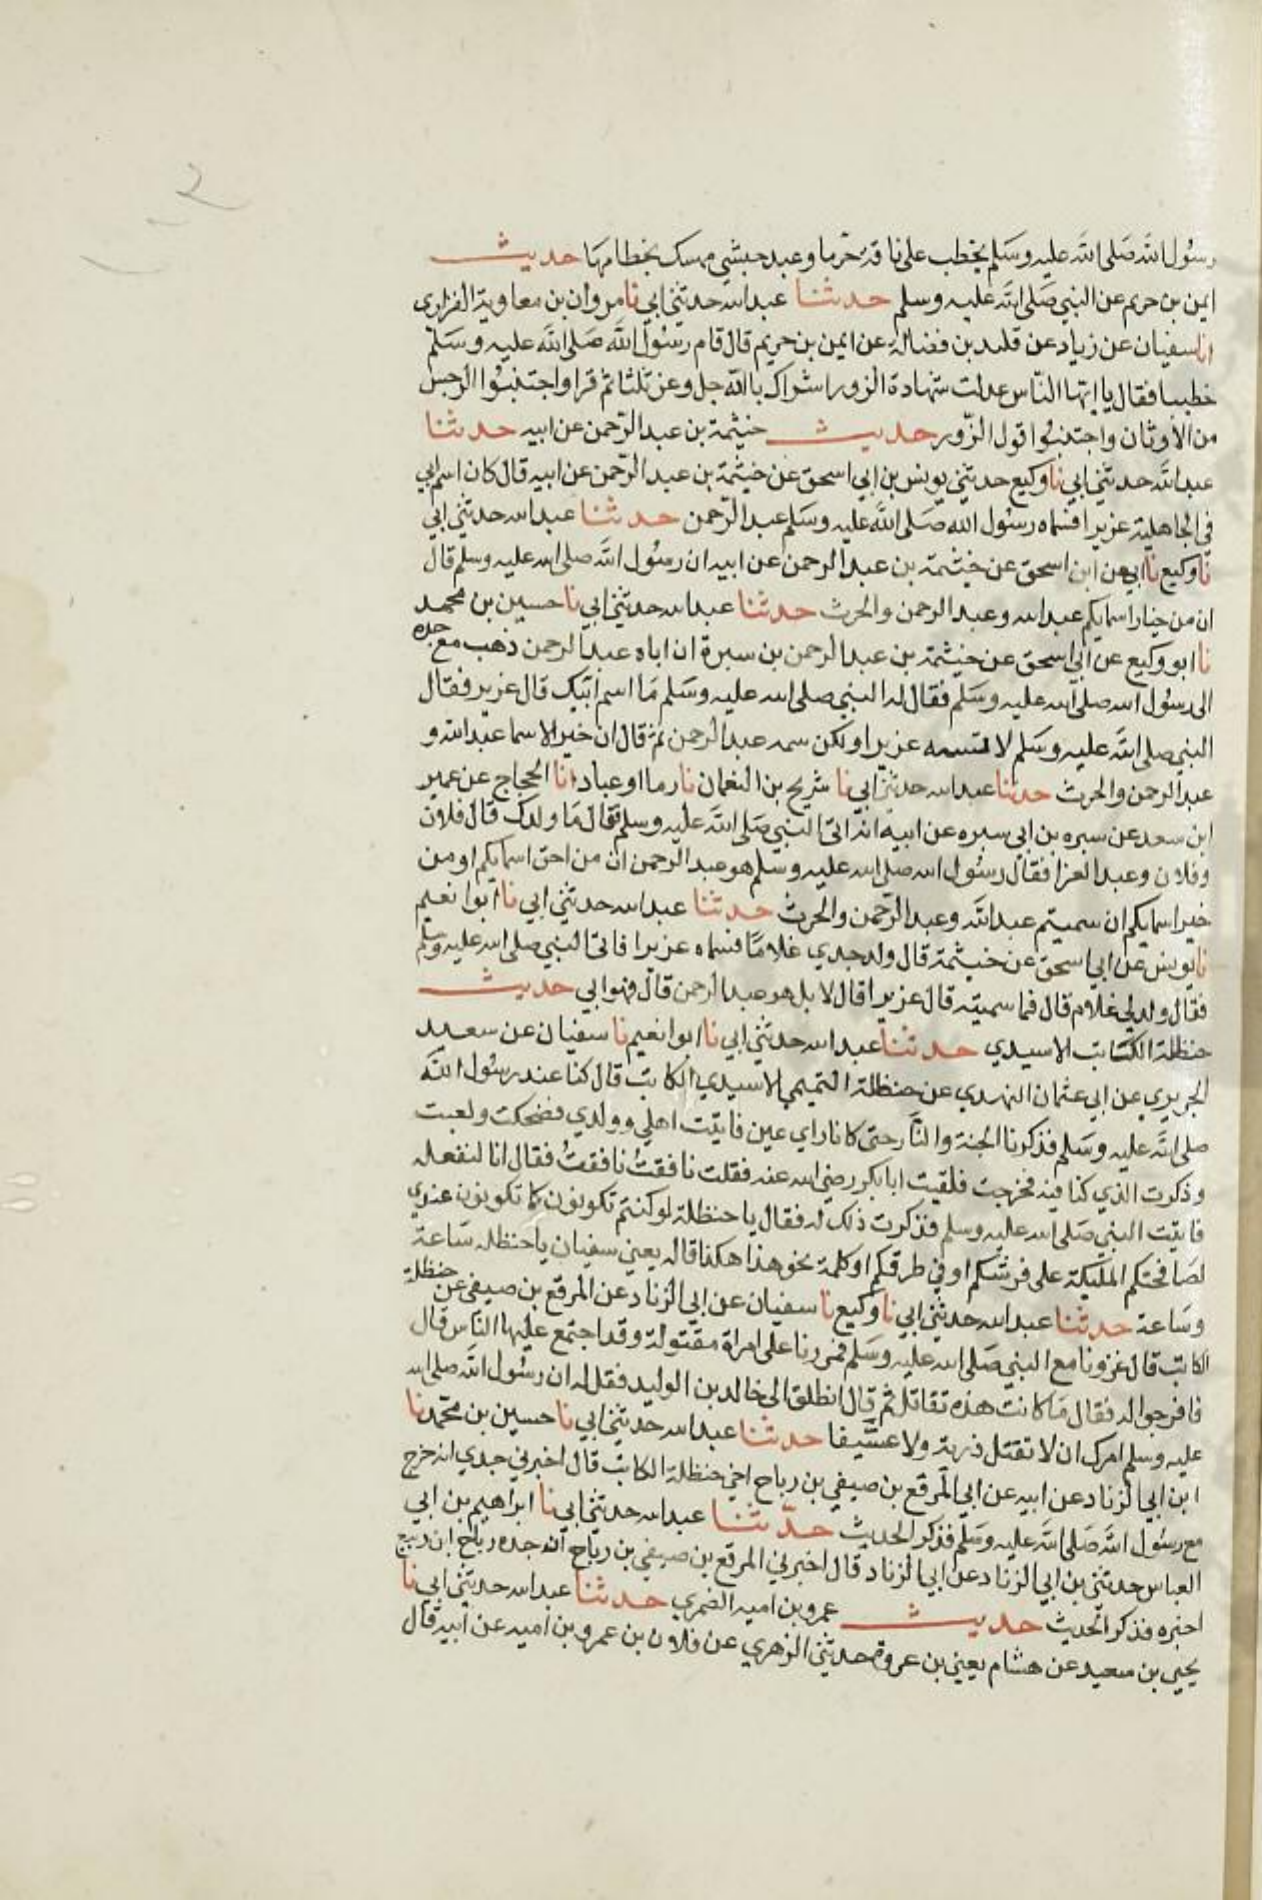 رسول الله صلى الله عليه وسلم يخطب على ناقة خرما وعبد حبشي ممسك بخطامها حديث
ايمن بن خريم عن النبي صلى الله عليه وسلم حدثنا عبد الله حدثني ابي نا مروان بن معاوية الفزاري
انا سفيان عن زياد عن فضالة عن ايمن بن خريم قال قام رسول الله صلى الله عليه وسلم
خطيبا فقال يا ايها الناس عدلت شهادة الزور اشراك بالله جل وعز ثلثا ثم قرا واجتنبوا الرجس
من الأوثان واجتنبوا قول الزور حديث خيثمة بن عبد الرحمن عن ابيه حدثنا
عبد الله حدثني ابي نا وكيع حدثني يونس بن ابي اسحق عن خيثمة بن عبد الرحمن عن ابيه قال كان اسم ابي
في الجاهلية عزيرا فسماه رسول الله صلى الله عليه وسلم عبد الرحمن حدثنا عبد الله حدثني ابي
نا وكيع نا ابي عن ابن اسحق عن خيثمة بن عبد الرحمن عن ابيه ان رسول الله صلى الله عليه وسلم قال
ان من خيار اسمايكم عبد الله وعبد الرحمن والحرث حدثنا عبد الله حدثني ابي نا حسين بن محمد
نا ابو وكيع عن ابي اسحق عن خيثمة بن عبد الرحمن بن سبرة ان اباه عبد الرحمن ذهب مع جده
الى رسول الله صلى الله عليه وسلم فقال له النبي صلى الله عليه وسلم ما اسم ابنك قال عزير فقال
النبي صلى الله عليه وسلم لا تسمه عزيرا ولكن سمه عبد الرحمن ثم قال ان خير الاسما عبد الله و
عبد الرحمن والحرث حدثنا عبد الله حدثني ابي نا شريح بن النعمان نا عباد انا الحجاج عن عمير
ابن سعد عن سبره بن ابي سبره عن ابيه انه اتى النبي صلى الله عليه وسلم فقال ما ولدك قال فلان
وفلان وعبد العزا فقال رسول الله صلى الله عليه وسلم هو عبد الرحمن ان من احق اسمايكم او من
خير اسمايكم ان سميتم عبد الله وعبد الرحمن والحرث حدثنا عبد الله حدثني ابي نا ابوا نعيم
نا يونس عن ابي اسحق عن خيثمة قال ولد جدي غلاما فسماه عزيرا فاتى النبي صلى الله عليه وسلم
فقال ولد لي غلام قال فما سميته قال عزيرا قال لا بل هو عبد الرحمن قال فهو ابي حديث
حنظلة الكتاتب الاسيدي حدثنا عبد الله حدثني ابي نا ابوا نعيم نا سفيان عن سعيد
الجريري عن ابي عثمان النهدي عن حنظلة التميمي الاسيدي الكاتب قال كنا عند رسول الله
صلى الله عليه وسلم فذكرنا الجنة والنار حتى كانا راي عين فاتيت اهلي وولدي فضحكت ولعبت
وذكرت الذي كنا فيه فخرجت فلقيت ابابكر رضي الله عنه فقلت نافقت نافقت فقال انا لنفعله
فاتيت النبي صلى الله عليه وسلم فذكرت ذلك له فقال يا حنظلة لو كنتم تكونون كما تكونون عندي
لصافحتكم المليكة على فرشكم او في طرقكم او كلمة نحو هذا هكذا قاله يعني سفيان يا حنظله ساعة
وساعة حدثنا عبد الله حدثني ابي نا وكيع نا سفيان عن ابي الزناد عن المرقع بن صيفي عن حنظلة
الكاتب قال غزونا مع النبي صلى الله عليه وسلم فمررنا على امراة مقتولة وقد اجتمع عليها الناس قال
فافرجوا له فقال ما كانت هذه تقاتل ثم قال انطلق الى خالد بن الوليد فقل له ان رسول الله صلى الله
عليه وسلم امرك ان لا تقتل ذرية ولا عسيفا حدثنا عبد الله حدثني ابي نا حسين بن محمد نا
ابن ابي الزناد عن ابيه عن ابي المرقع بن صيفي بن رباح اخي حنظلة الكاتب قال اخبرني جدي انه خرج
مع رسول الله صلى الله عليه وسلم فذكر الحديث حدثنا عبد الله حدثني ابي نا ابراهيم بن ابي
العباس حدثني بن ابي الزناد عن ابي الزناد قال اخبرني المرقع بن صيفي بن رباح ان جده رباح ابن ربيع
اخبره فذكر الحديث حديث عمرو بن اميه الضمري حدثنا عبد الله حدثني ابي نا
يحيى بن سعيد عن هشام يعني بن عروة حدثني الزهري عن فلان بن عمرو بن اميه عن ابيه قال